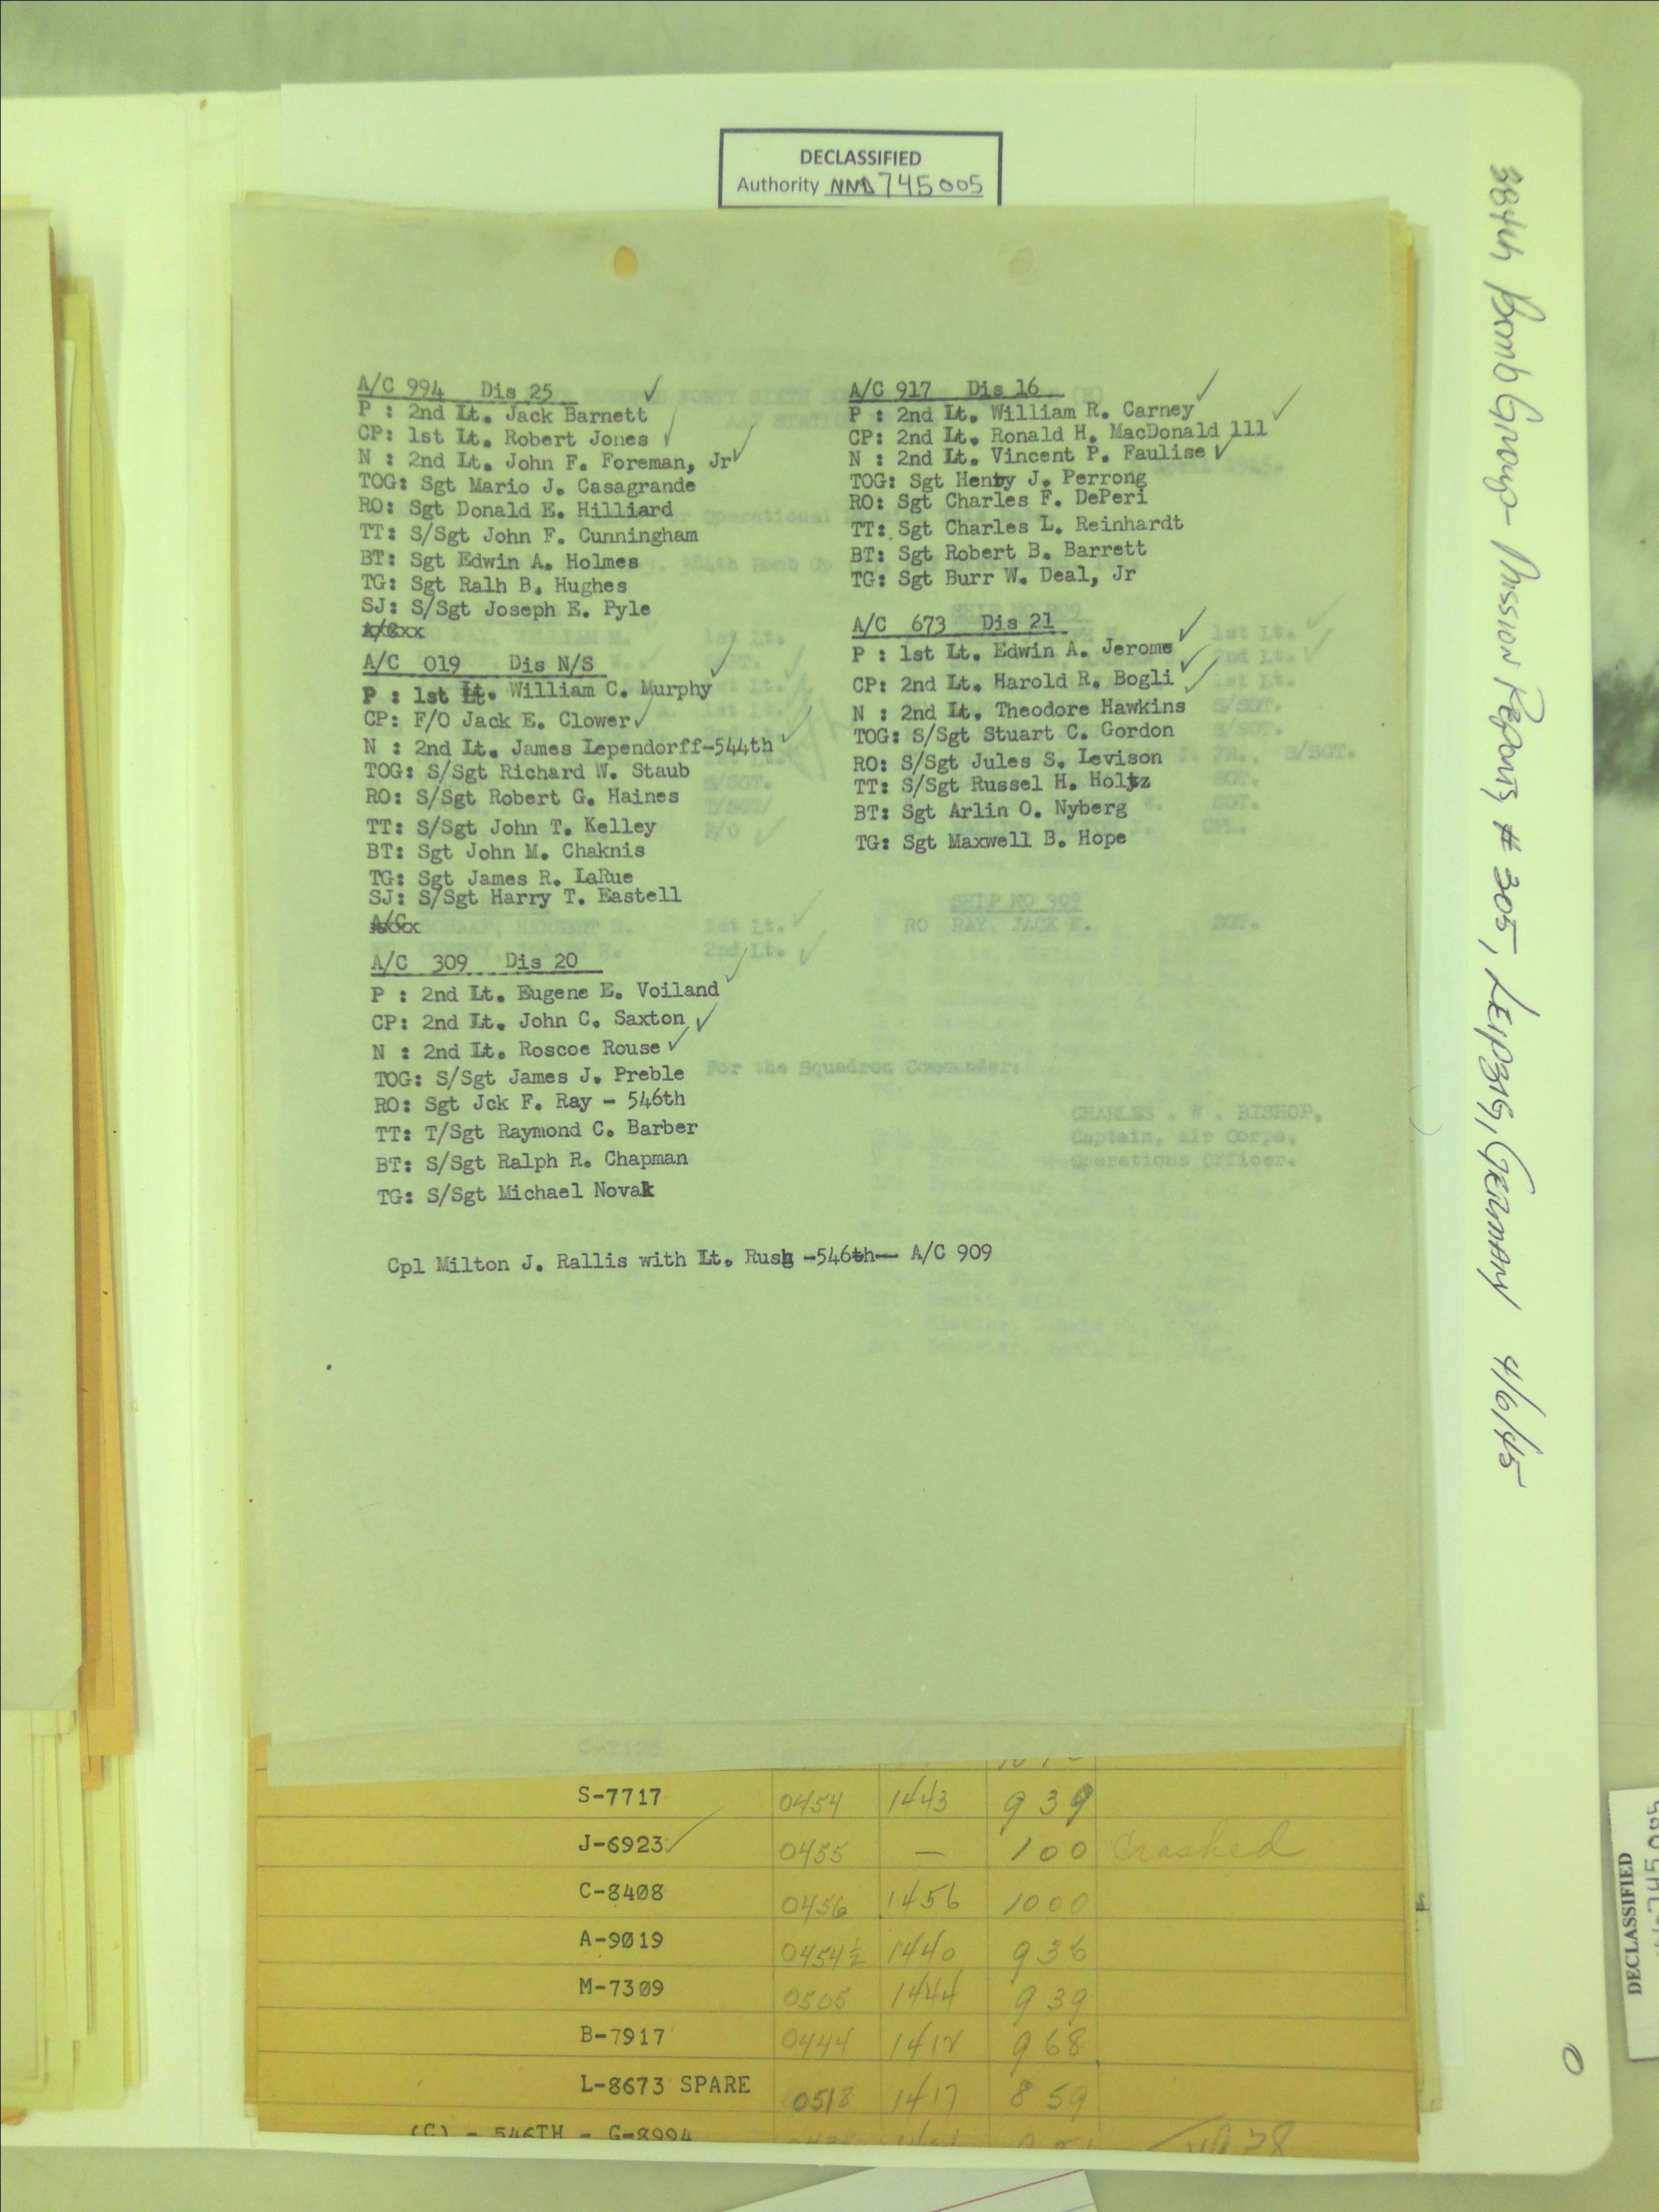 DECLASSIFIED
Authority NND 745005
384th Bomb Group - Mission Reports, # 305, Leipzig, Germany 4/6/45
A/C 994 Dis 25
P : 2nd Lt. Jack Barnett
CP: 1st Lt. Robert Jones
N : 2nd Lt. John F. Foreman, Jr
TOG: Sgt Mario J. Casagrande
RO: Sgt Donald E. Hilliard
TT: S/Sgt John F. Cunningham
BT: Sgt Edwin A. Holmes
TG: Sgt Ralh B. Hughes
SJ: S/Sgt Joseph E. Pyle
A/C 019 Dis N/S
P : 1st Lt. William C. Murphy
CP: F/O Jack E. Clower
N : 2nd Lt. James Lependorff-544th
TOG: S/Sgt Richard W. Staub
RO: S/Sgt Robert G. Haines
TT: S/Sgt John T. Kelley
BT: Sgt John M. Chaknis
TG: Sgt James R. LaRue
SJ: S/Sgt Harry T. Eastell
A/C 309 Dis 20
P : 2nd Lt. Eugene E. Voiland
CP: 2nd Lt. John C. Saxton
N : 2nd Lt. Roscoe Rouse
TOG: S/Sgt James J. Preble
RO: Sgt Jck F. Ray - 546th
TT: T/Sgt Raymond C. Barber
BT: S/Sgt Ralph R. Chapman
TG: S/Sgt Michael Novak
A/C 917 Dis 16
P : 2nd Lt. William R. Carney
CP: 2nd Lt. Ronald H. MacDonald 111
N : 2nd Lt. Vincent P. Faulise
TOG: Sgt Henry J. Perrong
RO: Sgt Charles F. DePeri
TT: Sgt Charles L. Reinhardt
BT: Sgt Robert B. Barrett
TG: Sgt Burr W. Deal, Jr
A/C 673 Dis 21
P : 1st Lt. Edwin A. Jerome
CP: 2nd Lt. Harold R. Bogli
N : 2nd Lt. Theodore Hawkins
TOG: S/Sgt Stuart C. Gordon
RO: S/Sgt Jules S. Levison
TT: S/Sgt Russel H. Holtz
BT: Sgt Arlin O. Nyberg
TG: Sgt Maxwell B. Hope
SHIP NO 309
RO RAY, JACK F. SGT.
For the Squadron Commander:
CHARLES . W . BISHOP,
Captain, Air Corps,
Operations Officer.
Cpl Milton J. Rallis with Lt. Rush -546th- A/C 909
S-7717 0454 1443 939
J-6923 0455 — 100 Crashed
C-8408 0456 1456 1000
A-9019 0454½ 1440 936
M-7309 0505 1444 939
B-7917 0444 1412 968
L-8673 SPARE 0518 1417 859
(C) - 546TH - G-8994
DECLASSIFIED